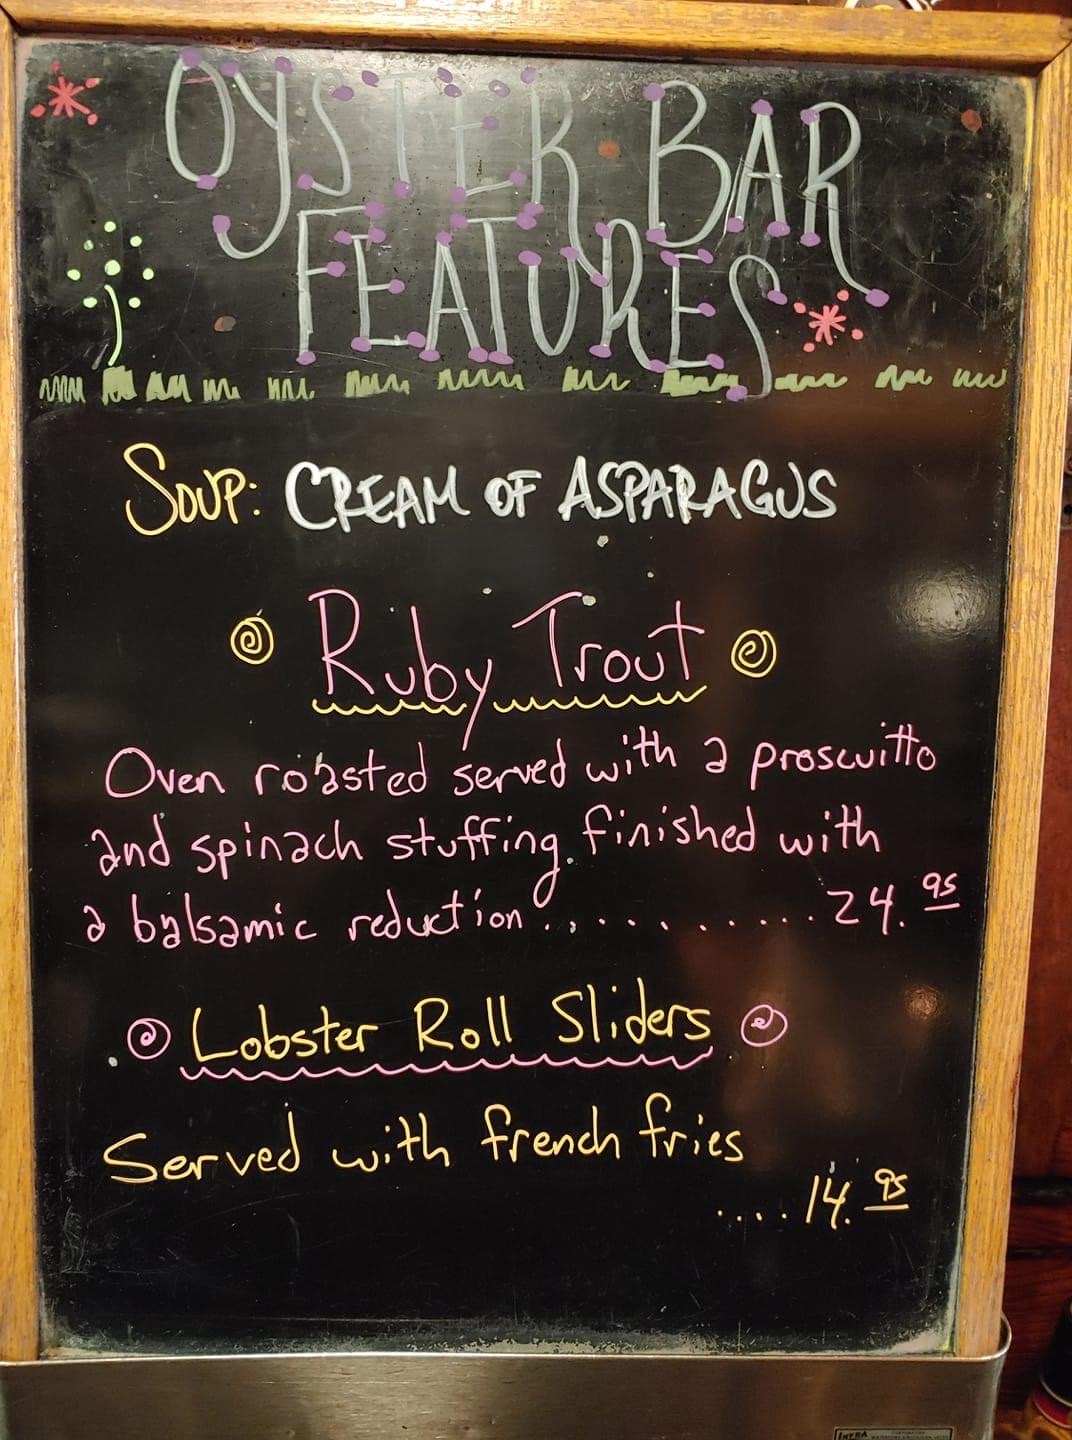 OYSTER BAR
FEATURES
SOUP: CREAM OF ASPARAGUS
Ruby Trout
Oven roasted served with a proscuitto
and spinach stuffing. finished with
a balsamic reduction...........24.95
Lobster Roll Sliders
Served with french fries
....14.95